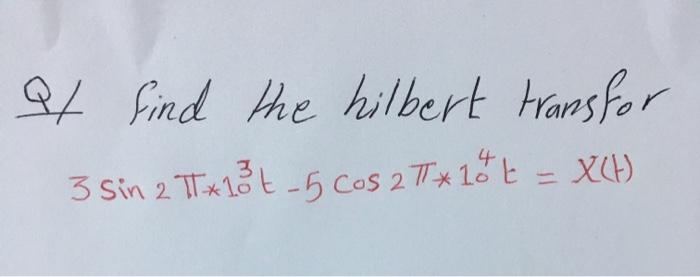 Q/ find the hilbert transfor
3 sin 2 π*10³t - 5 cos 2 π* 10⁴ t = X(t)